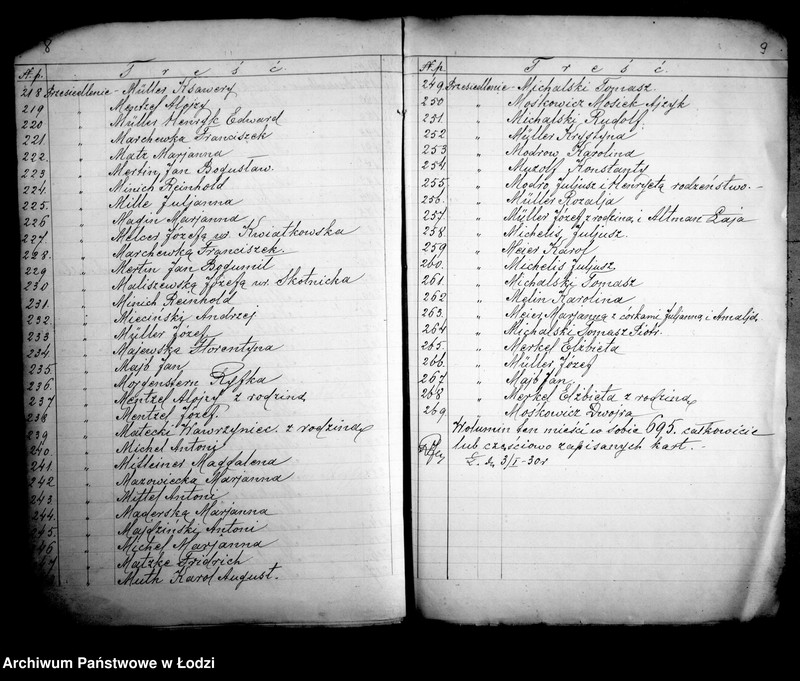 8
N.p. Treść.
218 Przesiedlenie - Müller Ksawery
219 " Mentzel Alojzy
220 " Müller Henryk Edward
221 " Marchewka Franciszek
222 " Matz Marjanna
223 " Mertin Jan Bogusław.
224 " Minich Reinhold
225 " Mille Juljanna
226 " Madin Marjanna
227 " Melcer Józefa ur. Kwiatkowska
228 " Marchewka Franciszek.
229 " Mertin Jan Bogumił
230 " Maliszewska Józefa ur. Skotnicka
231 " Minich Reinhold
232 " Mieciński Andrzej
233 " Müller Józef
234 " Majewska Florentyna
235 " Majb Jan
236 " Morgenstern Ryfka
237 " Mentzel Alojzy z rodziną
238 " Mentzel Józef
239 " Małecki Wawrzyniec z rodziną
240. " Michel Antoni
241. " Mitleiner Magdalena
242 " Mazowiecka Marjanna
243 " Mittel Antoni
244. " Maderska Marjanna
245. " Majdziński Antoni
246 " Michel Marjanna
" Matzke Fridrich
" Muth Karol August.
9
N.p. Treść.
249 Przesiedlenie - Michalski Tomasz
250 " Moskowicz Mosiek Ajzyk
251 " Michalski Rudolf
252 " Müller Krystyna
253 " Modrow Karolina
254 " Muzolf Konstanty
255 " Modro Juljusz i Henryeta rodzeństwo. -
256. " Müller Rozalja
257 " Müller Józef z rodziną i Altman Łaja
258. " Michelis Juljusz.
259 " Meier Karol
260. " Michelis Juljusz
261. " Michalski Tomasz
262 " Melin Karolina
263. " Meier Marjanna z córkami Juljanną i Amalją.
264 " Michalski Tomasz Piotr.
265. " Merkel Elżbieta
266. " Müller Józef
267 " Majb Jan
268 " Merkel Elżbieta z rodziną
269 " Moskowicz Dwojra
Wolumin ten mieści w sobie 695. całkowicie
lub częściowo zapisanych kart. -
Ł. dn 3/I - 30r
Archiwum Państwowe w Łodzi